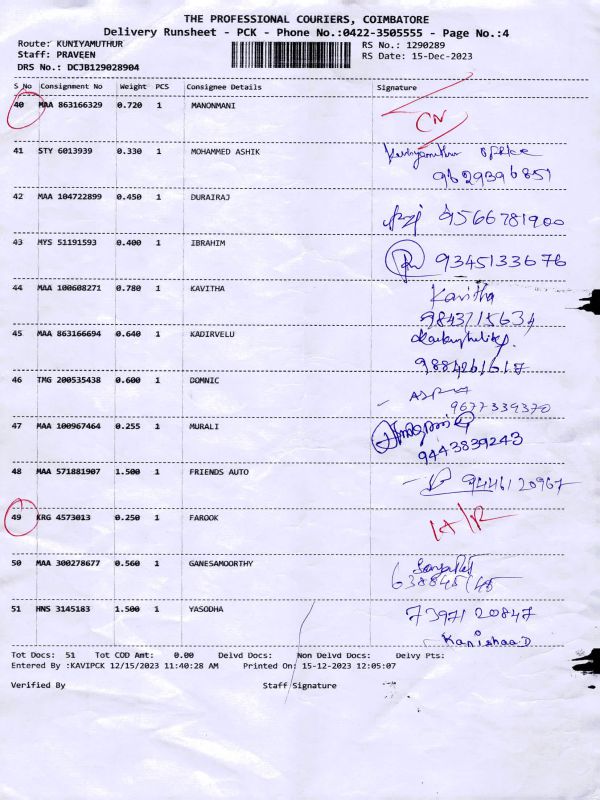 THE PROFESSIONAL COURIERS, COIMBATORE
Delivery Runsheet - PCK - Phone No.:0422-3505555 - Page No.:4
Route: KUNIYAMUTHUR RS No.: 1290289
Staff: PRAVEEN RS Date: 15-Dec-2023
DRS No.: DCJB129028904
S No Consignment No Weight PCS Consignee Details Signature
40 MAA 863166329 0.720 1 MANONMANI CN
41 STY 6013939 0.330 1 MOHAMMED ASHIK
9629396851
42 MAA 104722899 0.450 1 DURAIRAJ
9566781900
43 MYS 51191593 0.400 1 IBRAHIM
9345133676
44 MAA 100608271 0.780 1 KAVITHA Kavitha
9843715634
45 MAA 863166694 0.640 1 KADIRVELU
9884261617
46 TMG 200535438 0.600 1 DOMNIC
9677339370
47 MAA 100967464 0.255 1 MURALI
9443839243
48 MAA 571881907 1.500 1 FRIENDS AUTO
9446120967
49 KRG 4573013 0.250 1 FAROOK
50 MAA 300278677 0.560 1 GANESAMOORTHY
51 HNS 3145183 1.500 1 YASODHA 73971 20847
Kanishaa.D
Tot Docs: 51 Tot COD Amt: 0.00 Delvd Docs: Non Delvd Docs: Delvy Pts:
Entered By :KAVIPCK 12/15/2023 11:40:28 AM Printed On: 15-12-2023 12:05:07
Verified By Staff Signature